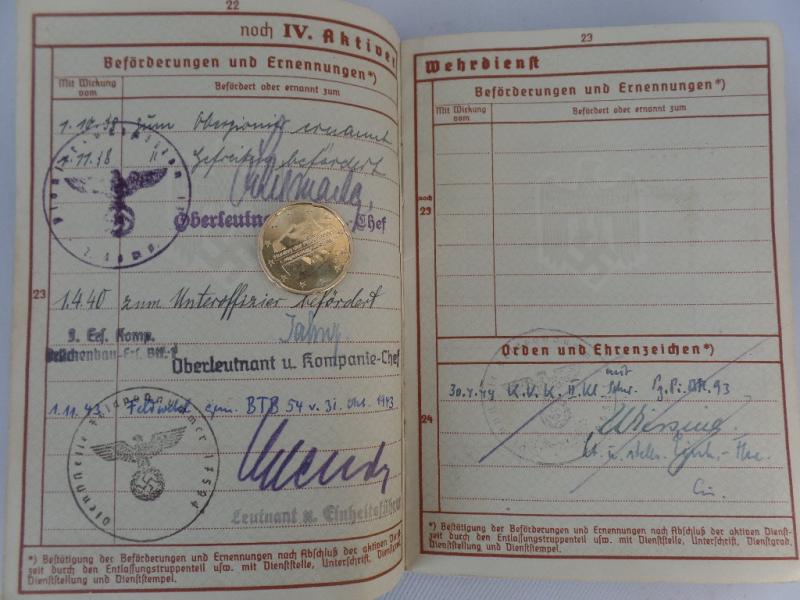 22
noch IV. Aktiver
Beförderungen und Ernennungen*)
Mit Wirkung vom
Befördert oder ernannt zum
1.10.38 zum Oberpionier ernannt
1.11.38 " Gefreiter befördert
Oberleutnant Chef
2. Komp.
23
1.4.40 zum Unteroffizier befördert
3. Ers. Komp.
Brückenbau-Ers. Btl. 1
Oberleutnant u. Kompanie-Chef
1.11.43 Feldwebel gem. BTB 54 v. 31. Okt. 1943
Dienststelle Feldpostnummer 17594
Leutnant u. Einheitsführer
*) Bestätigung der Beförderungen und Ernennungen nach Abschluß der aktiven Dienst-
zeit durch den Entlassungstruppenteil usw. mit Dienststelle, Unterschrift, Dienstgrad,
Dienststellung und Dienststempel.
23
Wehrdienst
Beförderungen und Ernennungen*)
Mit Wirkung vom
Befördert oder ernannt zum
noch 23
Orden und Ehrenzeichen*)
24
30.4.44 K.V.K. II. Kl. mit Schw. Pz. Pi. Btl. 93
*) Bestätigung der Beförderungen und Ernennungen nach Abschluß der aktiven Dienst-
zeit durch den Entlassungstruppenteil usw. mit Dienststelle, Unterschrift, Dienstgrad,
Dienststellung und Dienststempel.